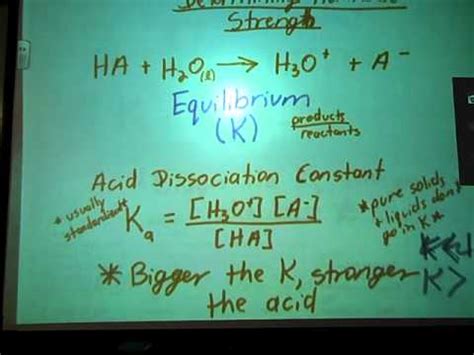 Strength
HA + H₂O(l) → H₃O⁺ + A⁻
Equilibrium
(K)
products
reactants
Acid Dissociation Constant
* usually
Kₐ = [H₃O⁺] [A⁻]
[HA]
*pure solids
+ liquids don't
go in K*
* Bigger the K, stronger
the acid
K>